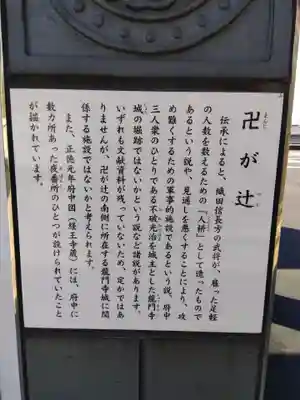 卍が辻
まんじ
つじ
伝承によると、織田信長方の武将が、雇った足軽
の人数を数えるための「人枡」として造ったもので
あるという説や、見通しを悪くすることにより、攻
め難くするための軍事的施設であるという説、府中
三人衆のひとりである不破光治を城主とした龍門寺
城の堀跡ではないかという説など諸説があります。
いずれも文献資料が残っていないため、定かではあ
りませんが、卍が辻の南側に所在する龍門寺城に関
係する施設ではないかと考えられます。
また、正徳元年府中図（経王寺蔵）には、府中に
数カ所あった夜番所のひとつが設けられていたこと
が描かれています。